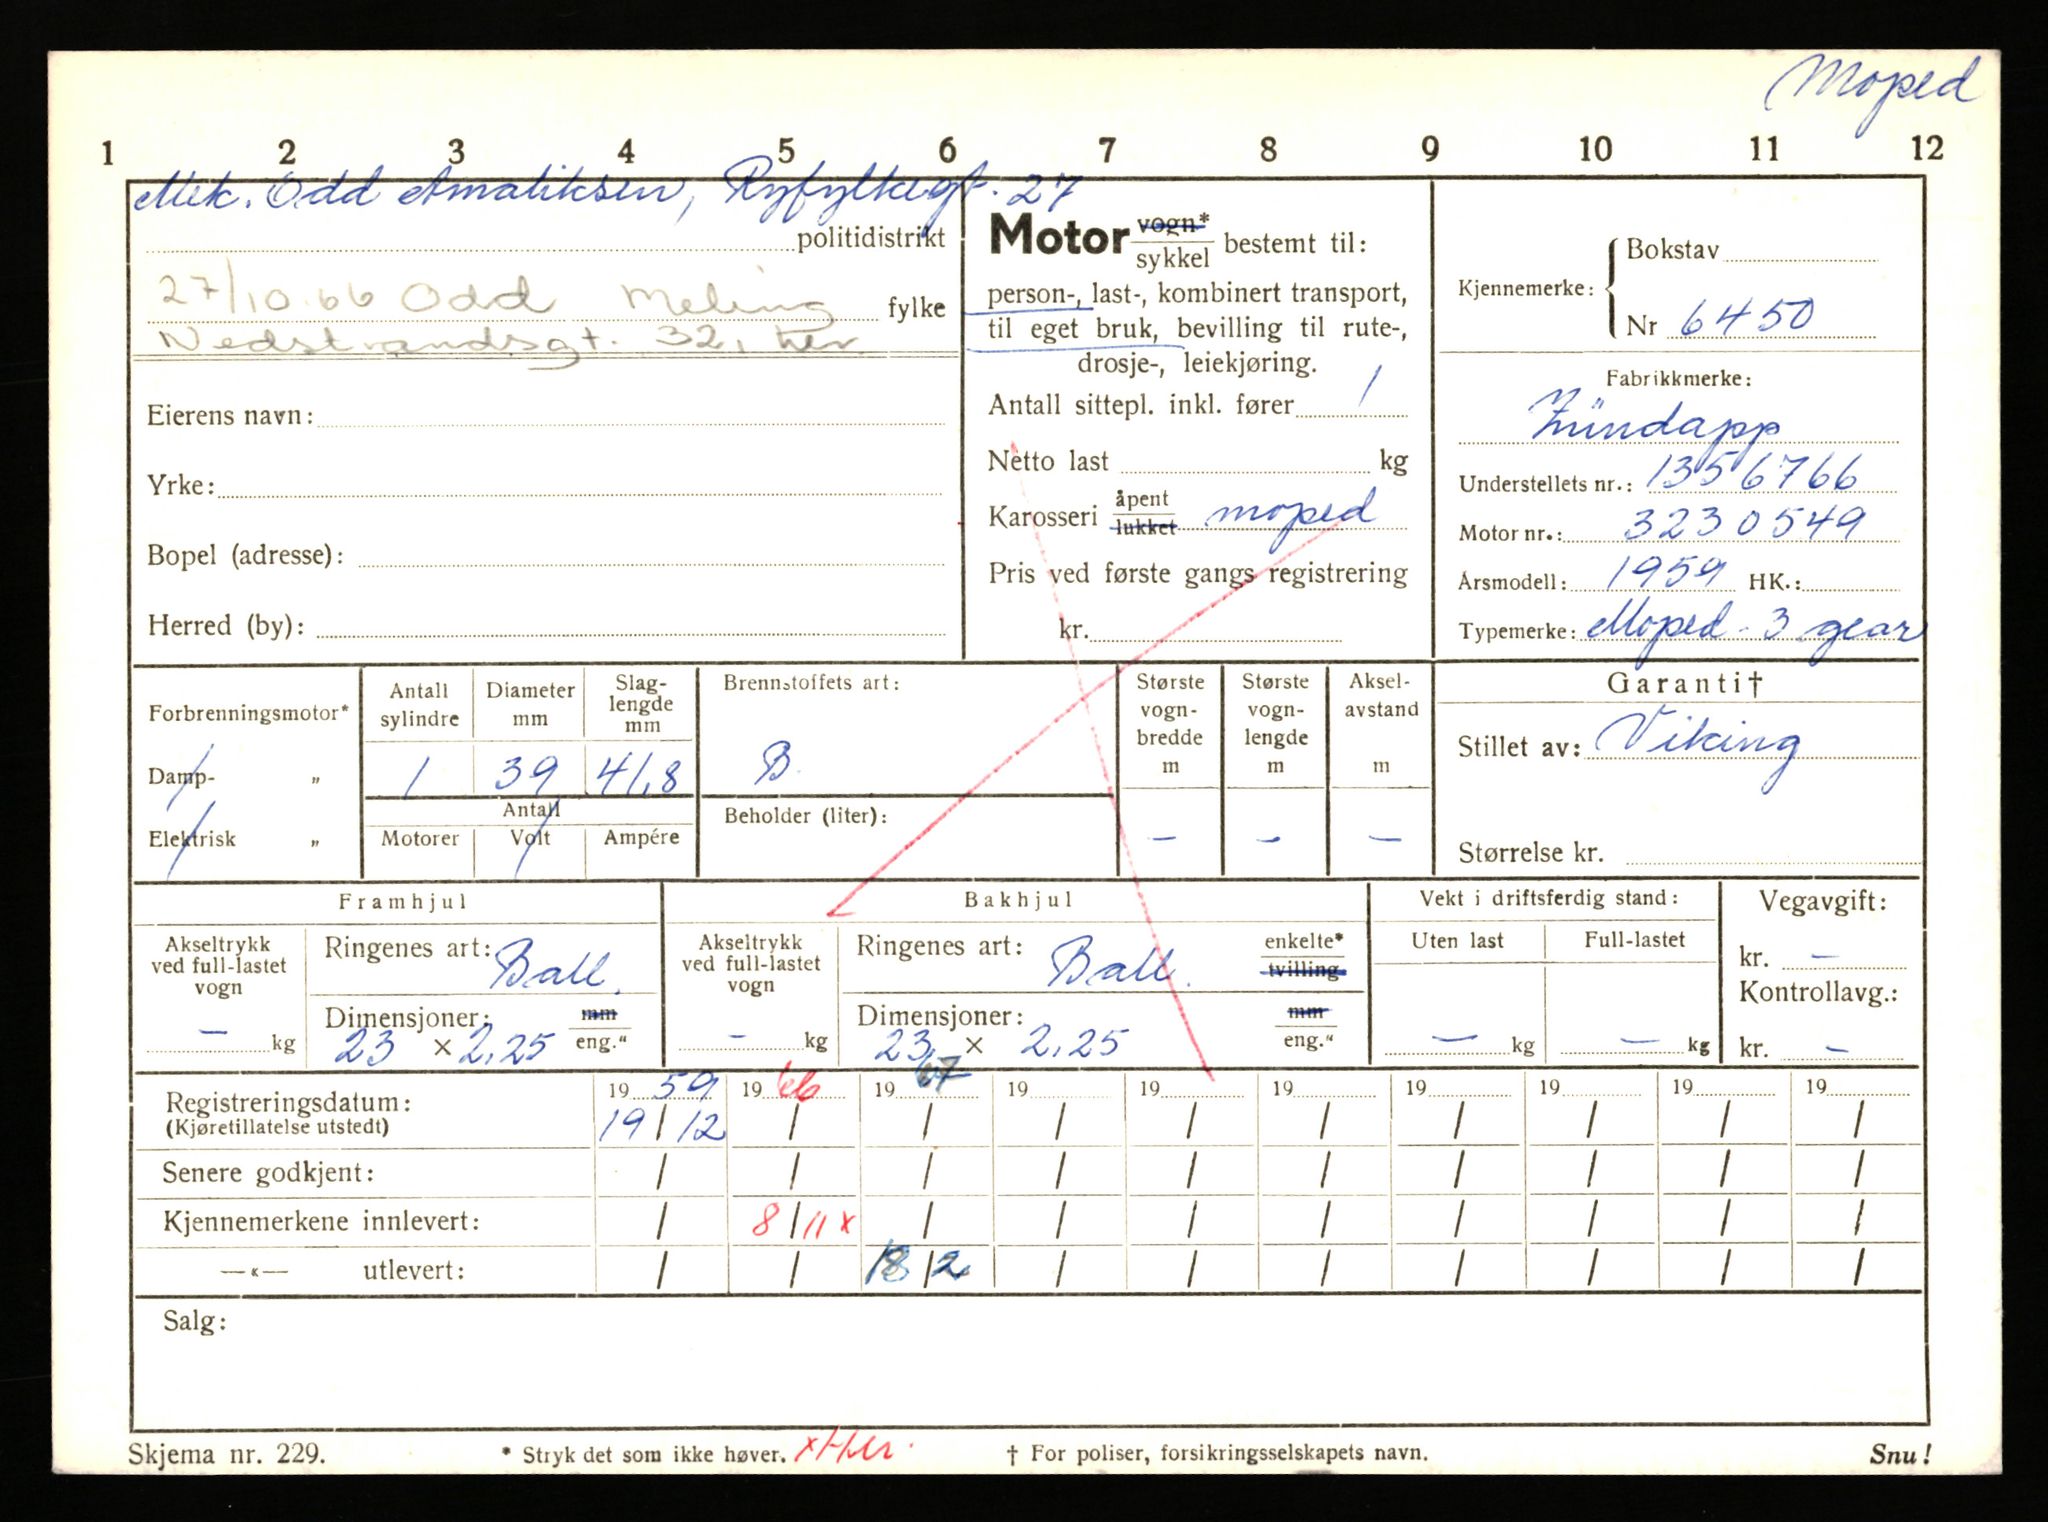 Moped
1 2 3 4 5 6 7 8 9 10 11 12
Mek. Odd Amaliksen, Ryfylkegt. 27
politidistrikt
27/10.66 Odd Meling fylke
Nedstrandsgt. 32, her
Eierens navn:
Yrke:
Bopel (adresse):
Herred (by):
Motor vogn* sykkel bestemt til:
person-, last-, kombinert transport,
til eget bruk, bevilling til rute-,
drosje-, leiekjøring.
Antall sittepl. inkl. fører 1
Netto last kg
Karosseri åpent lukket moped
Pris ved første gangs registrering
kr.
Kjennemerke: Bokstav
Nr 6450
Fabrikkmerke:
Zündapp
Understellets nr.: 1356766
Motor nr.: 3230549
Årsmodell: 1959 HK.:
Typemerke: Moped - 3 gear
Forbrenningsmotor*
Damp- „
Elektrisk „
Antall sylindre
Diameter mm
Slag-lengde mm
1 39 41,8
Antall
Motorer Volt Ampére
Brennstoffets art:
B.
Beholder (liter):
Største vogn-bredde m
Største vogn-lengde m
Aksel-avstand m
– – –
Garanti†
Stillet av: Viking
Størrelse kr.
Framhjul
Akseltrykk ved full-lastet vogn
– kg
Ringenes art: Ball.
Dimensjoner: mm
23 × 2,25 eng."
Bakhjul
Akseltrykk ved full-lastet vogn
- kg
Ringenes art: Ball. enkelte* tvilling
Dimensjoner: mm
23 × 2,25 eng."
Vekt i driftsferdig stand:
Uten last Full-lastet
– kg – kg
Vegavgift:
kr. –
Kontrollavg.:
kr. –
Registreringsdatum: 19 59 19 66 19 67 19 19 19 19 19 19 19
(Kjøretillatelse utstedt) 19/12 / / / / / / / / /
Senere godkjent: / / / / / / / / / /
Kjennemerkene innlevert: / 8/11 x / / / / / / / /
—«— utlevert: / / 18/2 / / / / / / /
Salg:
Skjema nr. 229. * Stryk det som ikke høver. x Her. † For poliser, forsikringsselskapets navn. Snu!